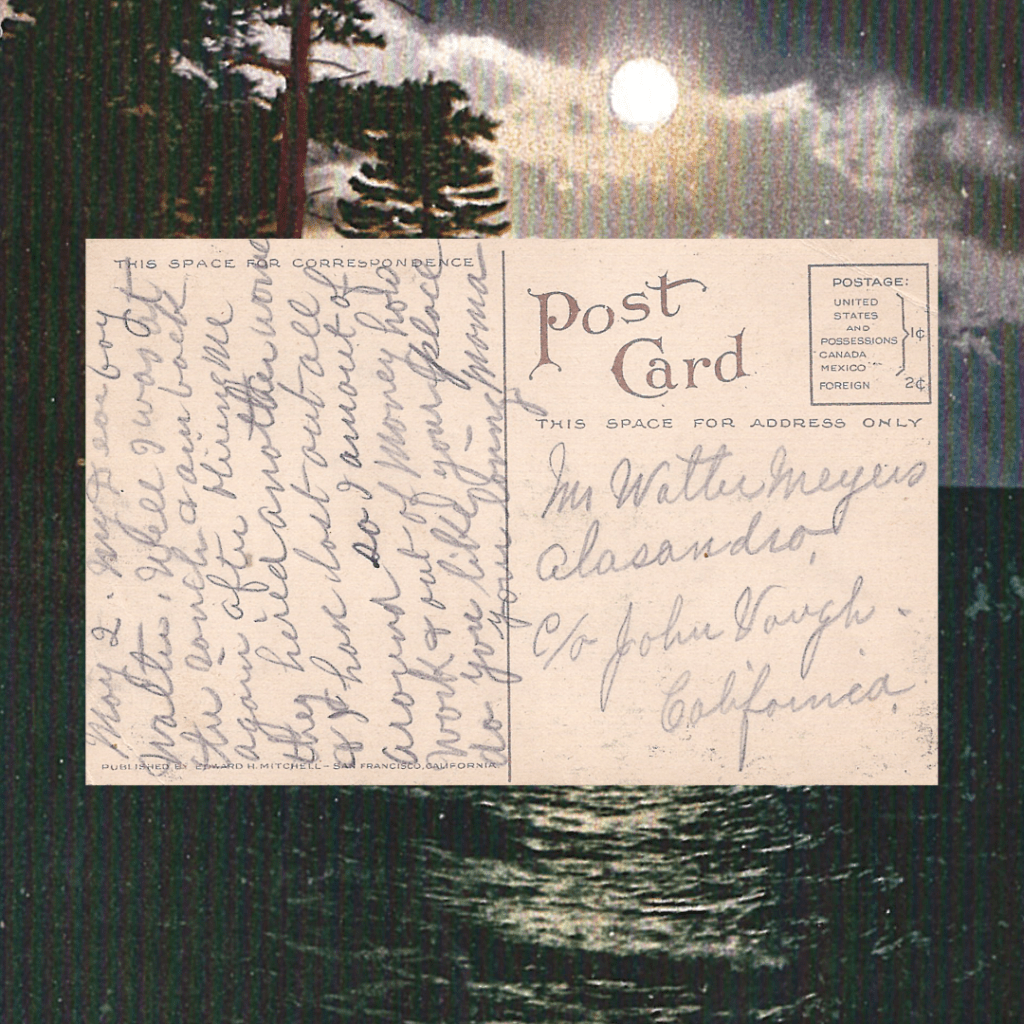 THIS SPACE FOR CORRESPONDENCE
May 2. My dear boy
Walter, Well I was at
the ranch again back
again after
they hired another
& have lost out all
so I am out of
around & out of money
work & out
do you like your place
your loving Moma
PUBLISHED BY EDWARD H. MITCHELL – SAN FRANCISCO, CALIFORNIA
Post
Card
POSTAGE:
UNITED
STATES
AND
POSSESSIONS
CANADA
MEXICO
1¢
FOREIGN 2¢
THIS SPACE FOR ADDRESS ONLY
Mr Walter Meyers
Alasandro,
c/o John Vough.
California.